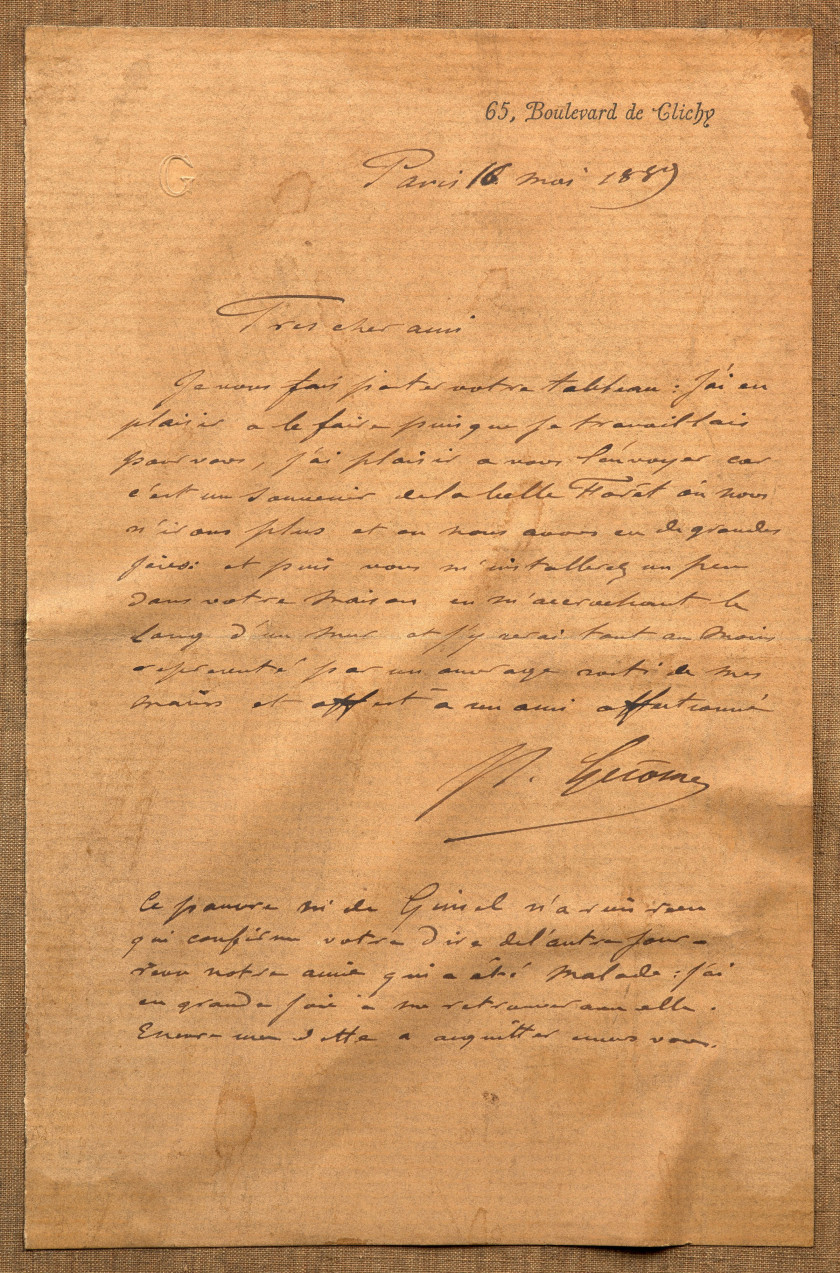 65, Boulevard de Clichy
G
Paris 16 mai 1889
Tres cher ami
Je vous fais porter votre tableau : j'ai eu
plaisir a le faire puisque je travaillais
pour vous, j'ai plaisir a vous l'envoyer car
c'est un souvenir de la belle Forêt où nous
n'irons plus et ou nous avons eu de grandes
joies : et puis vous m'installerez un peu
dans votre maison en m'accrochant le
long d'un mur et j'y serai tout au moins
representé par un ouvrage sorti de mes
mains et offert à un ami affectionné
Gerome
Ce pauvre de n'a rien
qui confirme votre dire de l'autre jour
notre amie qui a été malade : j'ai
eu grande joie à me retrouver avec elle.
Encore une dette a acquitter envers vous.